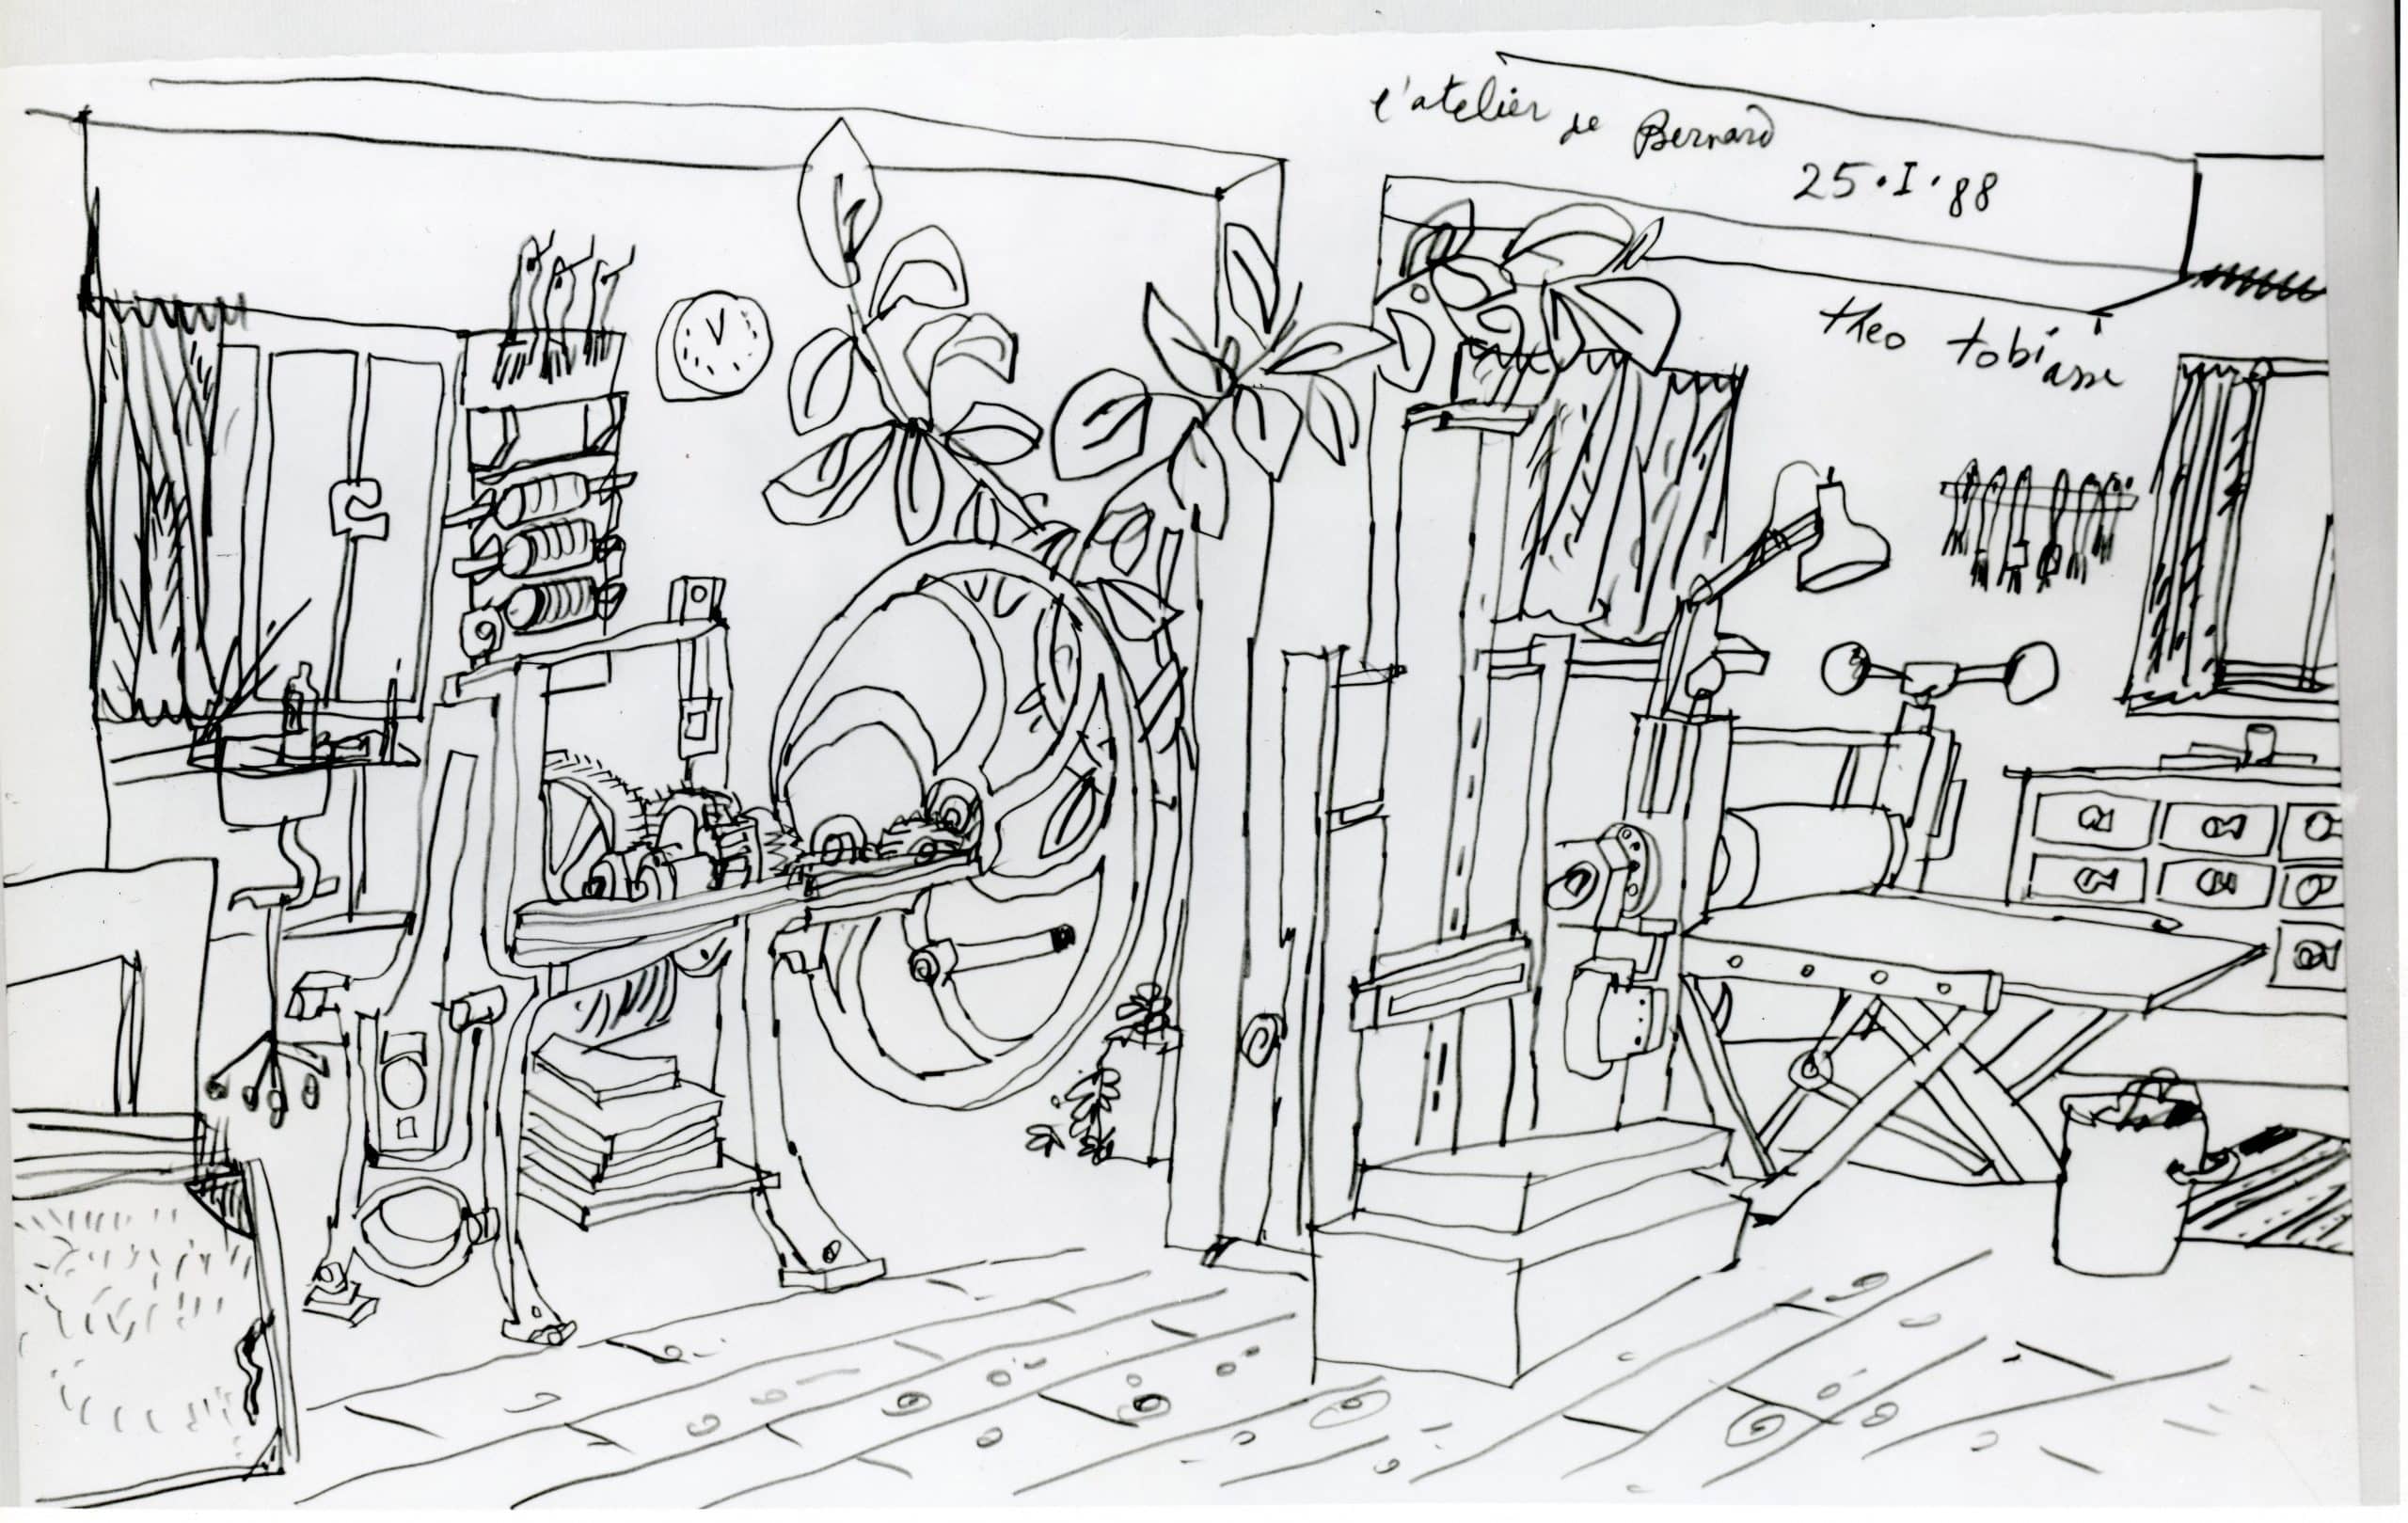 l'atelier de Bernard
25·I·88
theo tobiasse